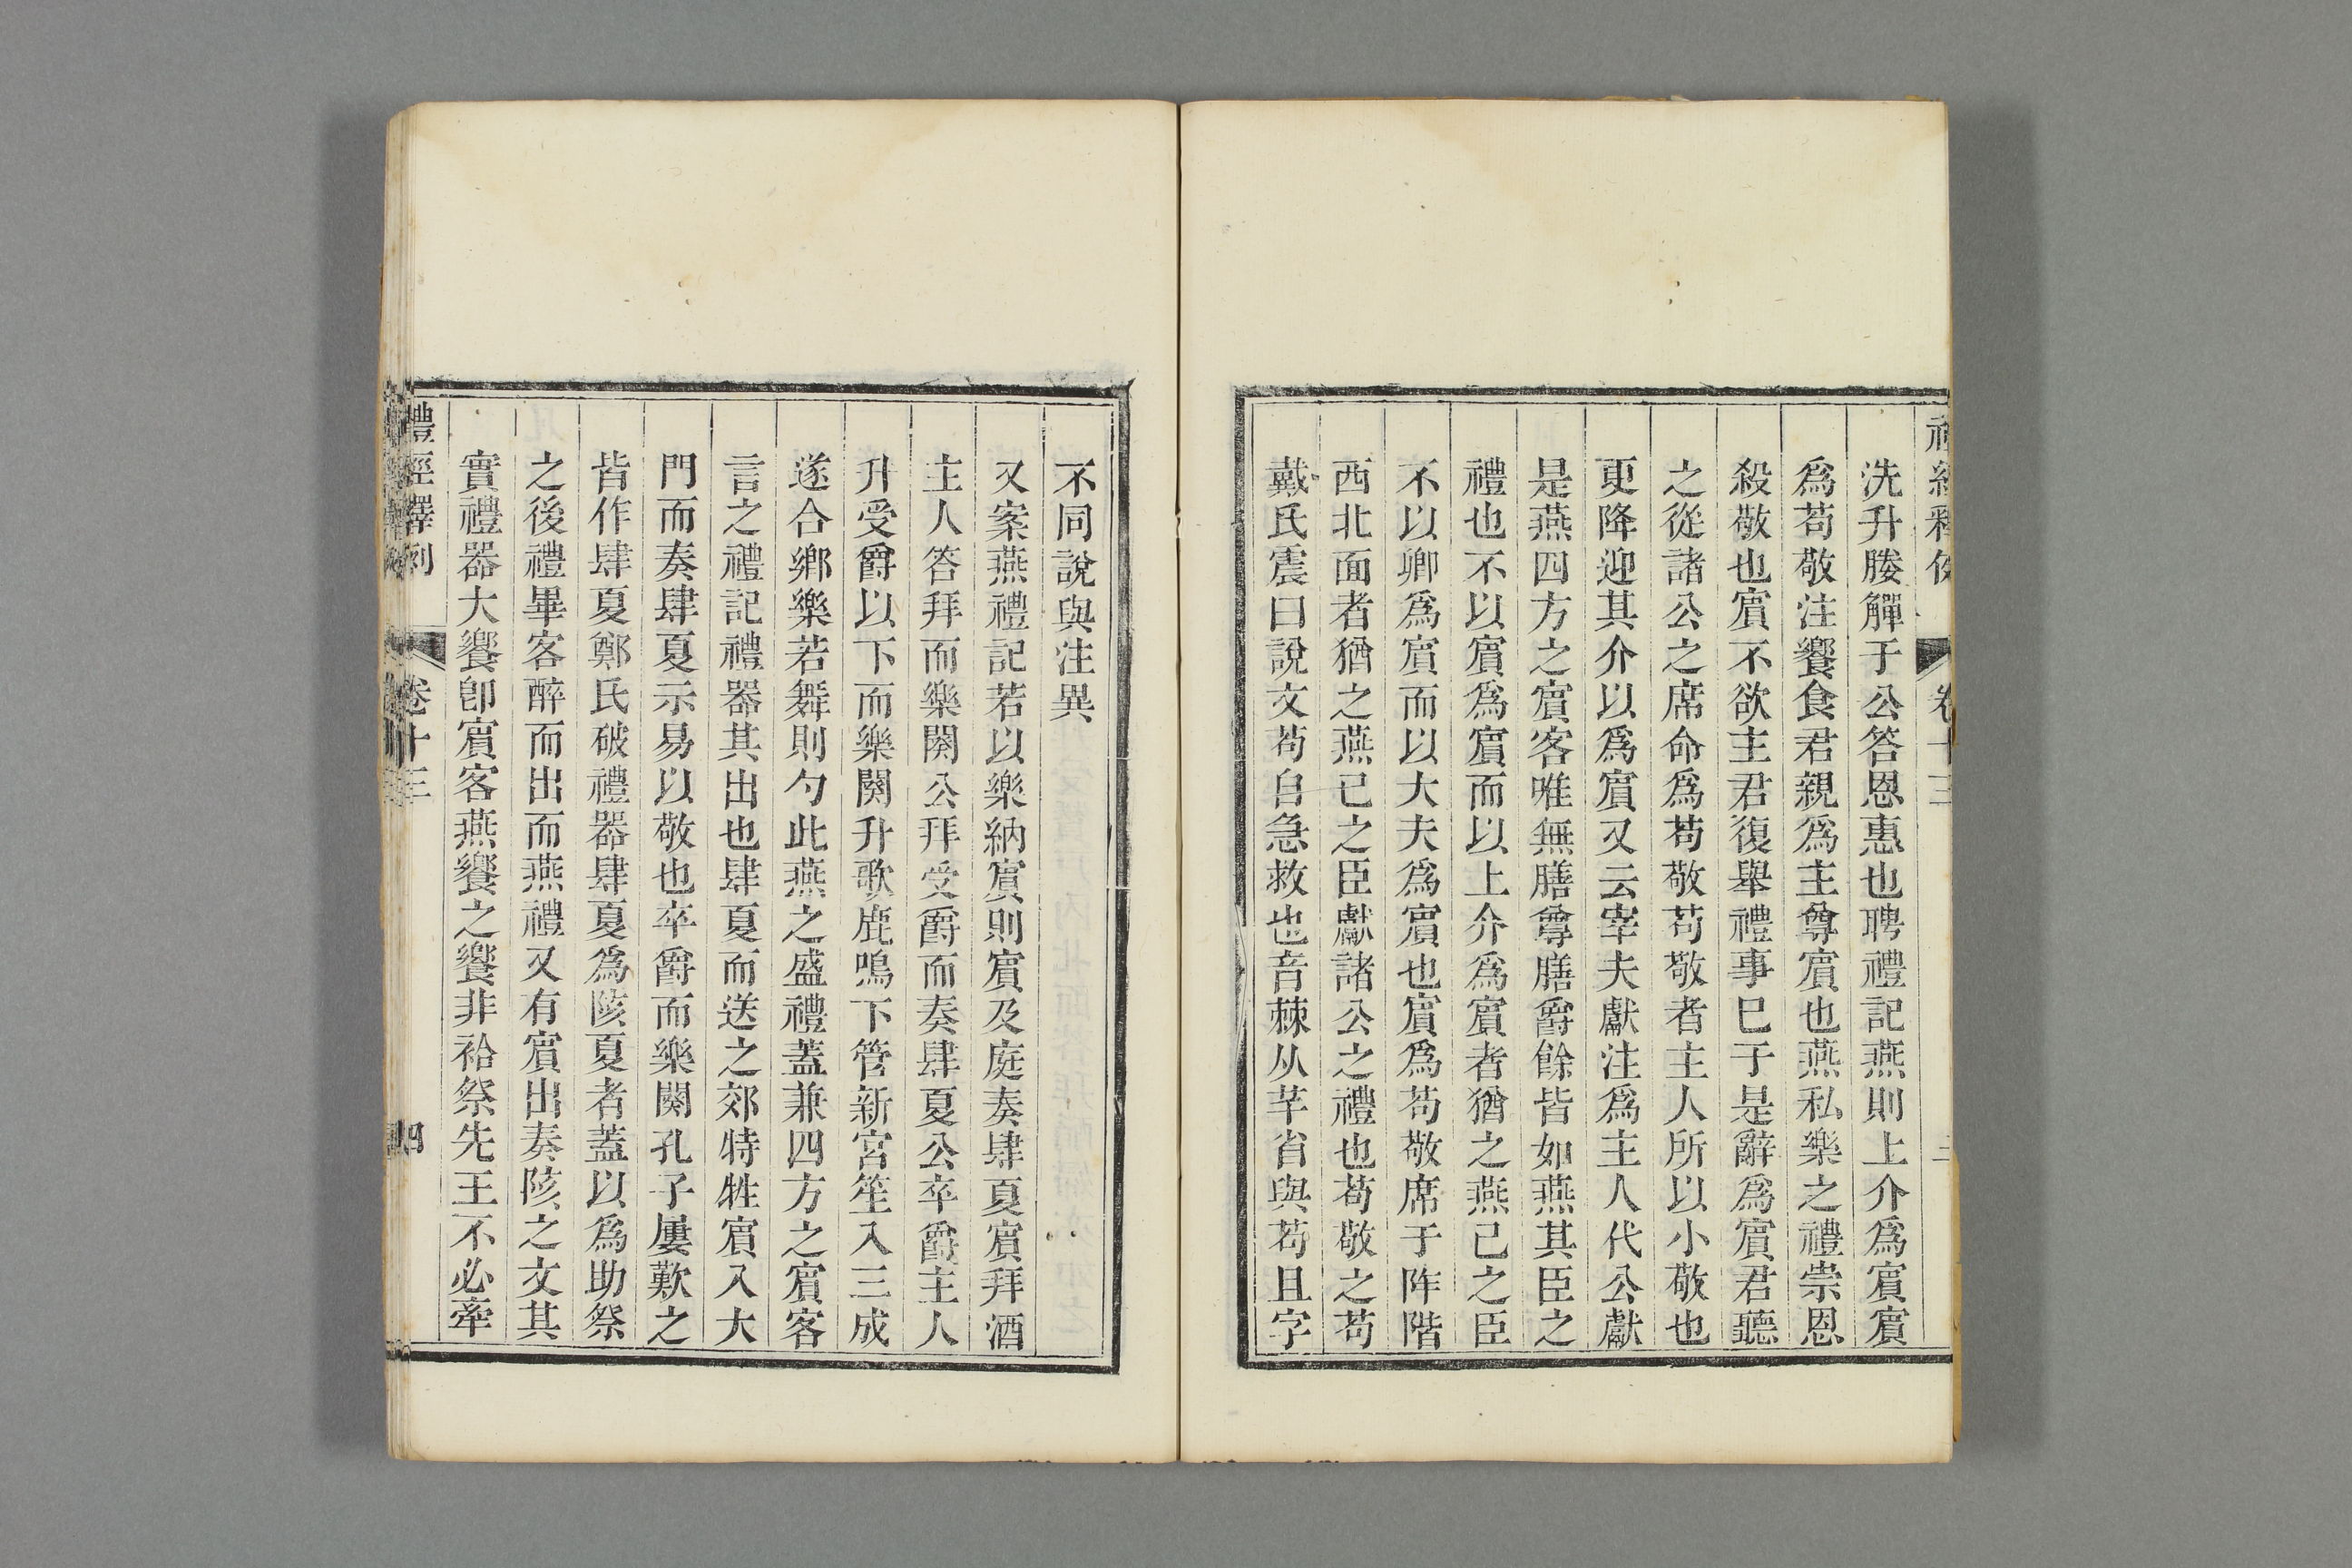 禮經釋例 卷十三 三
洗升媵觶于公答恩惠也聘禮記燕則上介爲賓賓
爲苟敬注饗食君親爲主尊賓也燕私樂之禮崇恩
殺敬也賓不欲主君復舉禮事已于是辭爲賓君聽
之從諸公之席命爲苟敬敬苟敬者主人所以小敬也
更降迎其介以爲賓又云宰夫獻注爲主人代公獻
是燕四方之賓客唯無膳尊膳爵餘皆如燕其臣之
禮也不以賓爲賓而以上介爲賓者猶之燕己之臣
不以卿爲賓而以大夫爲賓也賓爲苟敬席于阼階
西北面者猶之燕已之臣獻諸公之禮也苟敬之苟
戴氏震曰說文苟自急敕也音棘从芊省與苟且字
不同說與注異
又案燕禮記若以樂納賓則賓及庭奏肆夏賓拜酒
主人答拜而樂闋公拜受爵而奏肆夏公卒爵主人
升受爵以下而樂闋升歌鹿鳴下管新宮笙入三成
遂合鄉樂若舞則勺此燕之盛禮蓋兼四方之賓客
言之禮記禮器其出也肆夏而送之郊特牲賓入大
門而奏肆夏示易以敬也卒爵而樂闋孔子屢歎之
皆作肆夏鄭氏破禮器肆夏爲陔夏者蓋以爲助祭
之後禮畢客醉而出而燕禮又有賓出奏陔之文其
實禮器大饗卽賓客燕饗之饗非祫祭先王不必牽
禮經釋例 卷十三 四